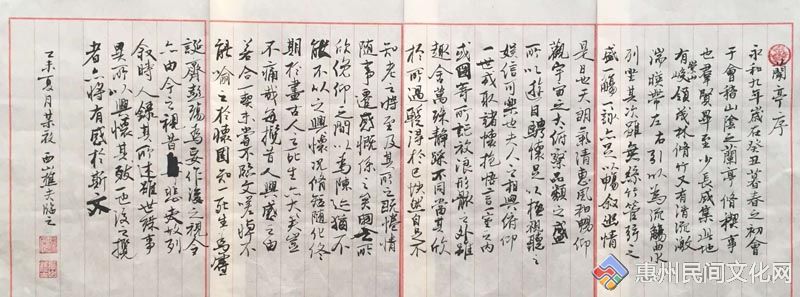 蘭亭序
永和九年歲在癸丑暮春之初會
于會稽山陰之蘭亭脩禊事
也羣賢畢至少長咸集此地
有崇山峻領茂林脩竹又有清流激
湍暎帶左右引以為流觴曲水
列坐其次雖無絲竹管弦之
盛一觴一詠亦足以暢敘幽情
是日也天朗氣清惠風和暢仰
觀宇宙之大俯察品類之盛
所以遊目騁懷足以極視聽之
娛信可樂也夫人之相與俯仰
一世或取諸懷抱悟言一室之內
或因寄所託放浪形骸之外雖
趣舍萬殊靜躁不同當其欣
於所遇暫得於己怏然自足不
知老之將至及其所之既惓情
隨事遷感慨係之矣向之所
欣俛仰之間以為陳迹猶不
能不以之興懷況脩短隨化終
期於盡古人云死生亦大矣豈
不痛哉每攬昔人興感之由
若合一契未嘗不臨文嗟悼不
能喻之於懷固知一死生為虛
誕齊彭殤為妄作後之視今
亦由今之視昔悲夫故列
敘時人錄其所述雖世殊事
異所以興懷其致一也後之攬
者亦將有感於斯文
乙未夏月某夜 西山樵夫臨之
惠州民间文化网